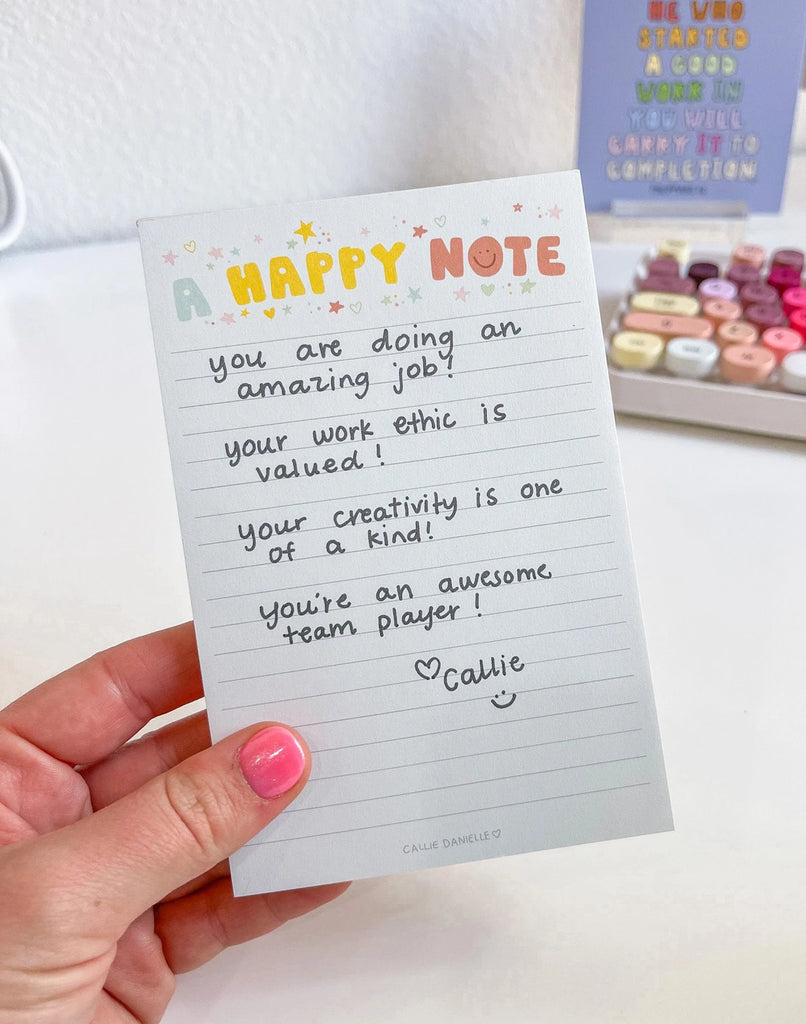 HE WHO
STARTED
A GOOD
WORK IN
YOU WILL
CARRY IT TO
COMPLETION
A HAPPY NOTE
you are doing an
amazing job!
your work ethic is
valued!
your creativity is one
of a kind!
you're an awesome
team player!
♡Callie
CALLIE DANIELLE♡